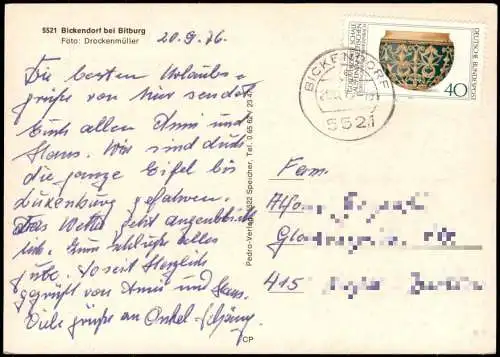 5521 Bickendorf bei Bitburg
Foto: Drockenmüller
20.9.76.
Die besten Urlaubs-
grüße von hier sendet
Euch allen Anni und
Hans. Wir sind durch
die ganze Eifel bis
Luxenburg gefahren.
Das Wetter jetzt augenblick
lich. Zum Schluße alles
gute. So seit Herzlich
gegrüßt von Anni und Hans.
Viele grüße an Onkel
Pedro-Verlag, 5522 Speicher, Tel. 0 65 62 / 23
CP
DEUTSCHE BUNDESPOST
40
BICKENDORF
5521
Fam.
415